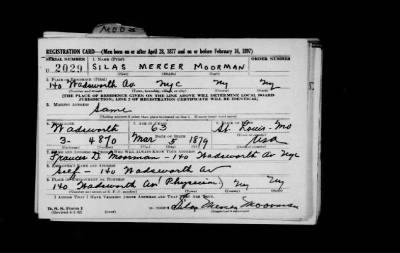 MOOS
REGISTRATION CARD—(Men born on or after April 28, 1877 and on or before February 16, 1897)
SERIAL NUMBER 1. NAME (Print) ORDER NUMBER
U 2029 SILAS MERCER MOORMAN
(First) (Middle) (Last)
2. PLACE OF RESIDENCE (Print)
140 Wadsworth Av NYC NY NY
(Number and street) (Town, township, village, or city) (County) (State)
[THE PLACE OF RESIDENCE GIVEN ON THE LINE ABOVE WILL DETERMINE LOCAL BOARD
JURISDICTION; LINE 2 OF REGISTRATION CERTIFICATE WILL BE IDENTICAL]
3. MAILING ADDRESS
Same
4. TELEPHONE 5. AGE IN YEARS 6. PLACE OF BIRTH
Wadsworth 63 St. Louis - Mo
DATE OF BIRTH
3- 4870 Mar 1879 USA
7. NAME AND ADDRESS OF PERSON WHO WILL ALWAYS KNOW YOUR ADDRESS
Frances D. Moorman - 140 Wadsworth Av NYC
8. EMPLOYER'S NAME AND ADDRESS
Self - 140 Wadsworth Av
9. PLACE OF EMPLOYMENT OR BUSINESS
140 Wadsworth Av (Physician) NY NY
(Number and street or R. F. D. number) (Town) (County) (State)
I AFFIRM THAT I HAVE VERIFIED ABOVE ANSWERS AND THAT THEY ARE TRUE.
D. S. S. Form 1
Silas Mercer Moorman